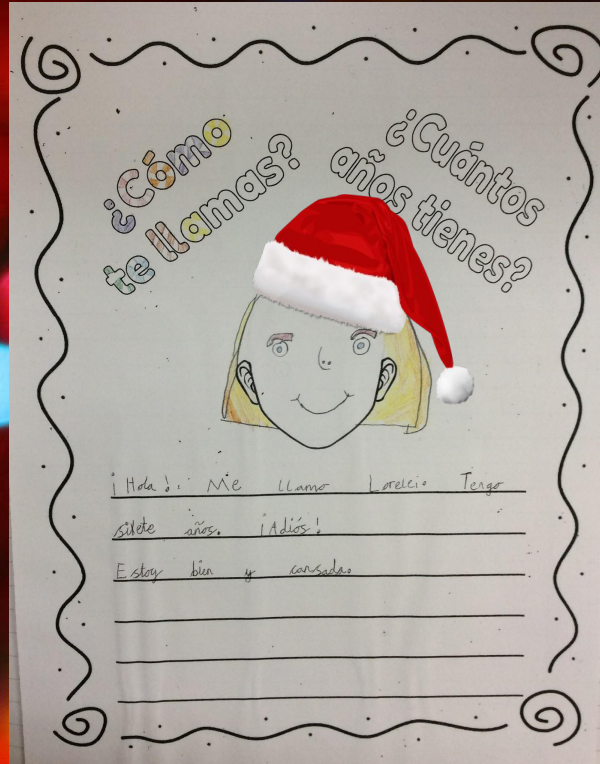 ¿Cómo
te llamas?
¿Cuántos
años tienes?
¡Hola!. Me llamo Tengo
años. ¡Adiós!
Estoy bien y cansada.